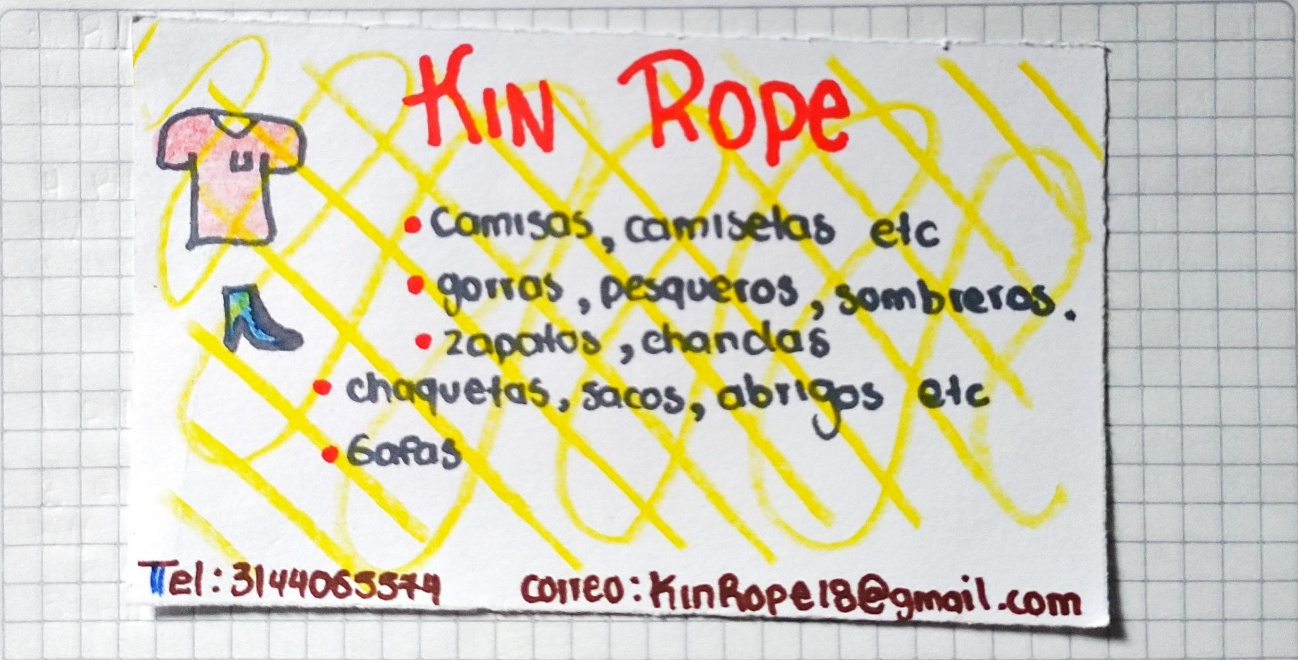 Kin Rope
• Camisas, camisetas etc
• gorras, pesqueros, sombreros.
• zapatos, chandas
• chaquetas, sacos, abrigos etc
• Gafas
Tel: 3144065574
correo: KinRope18@gmail.com